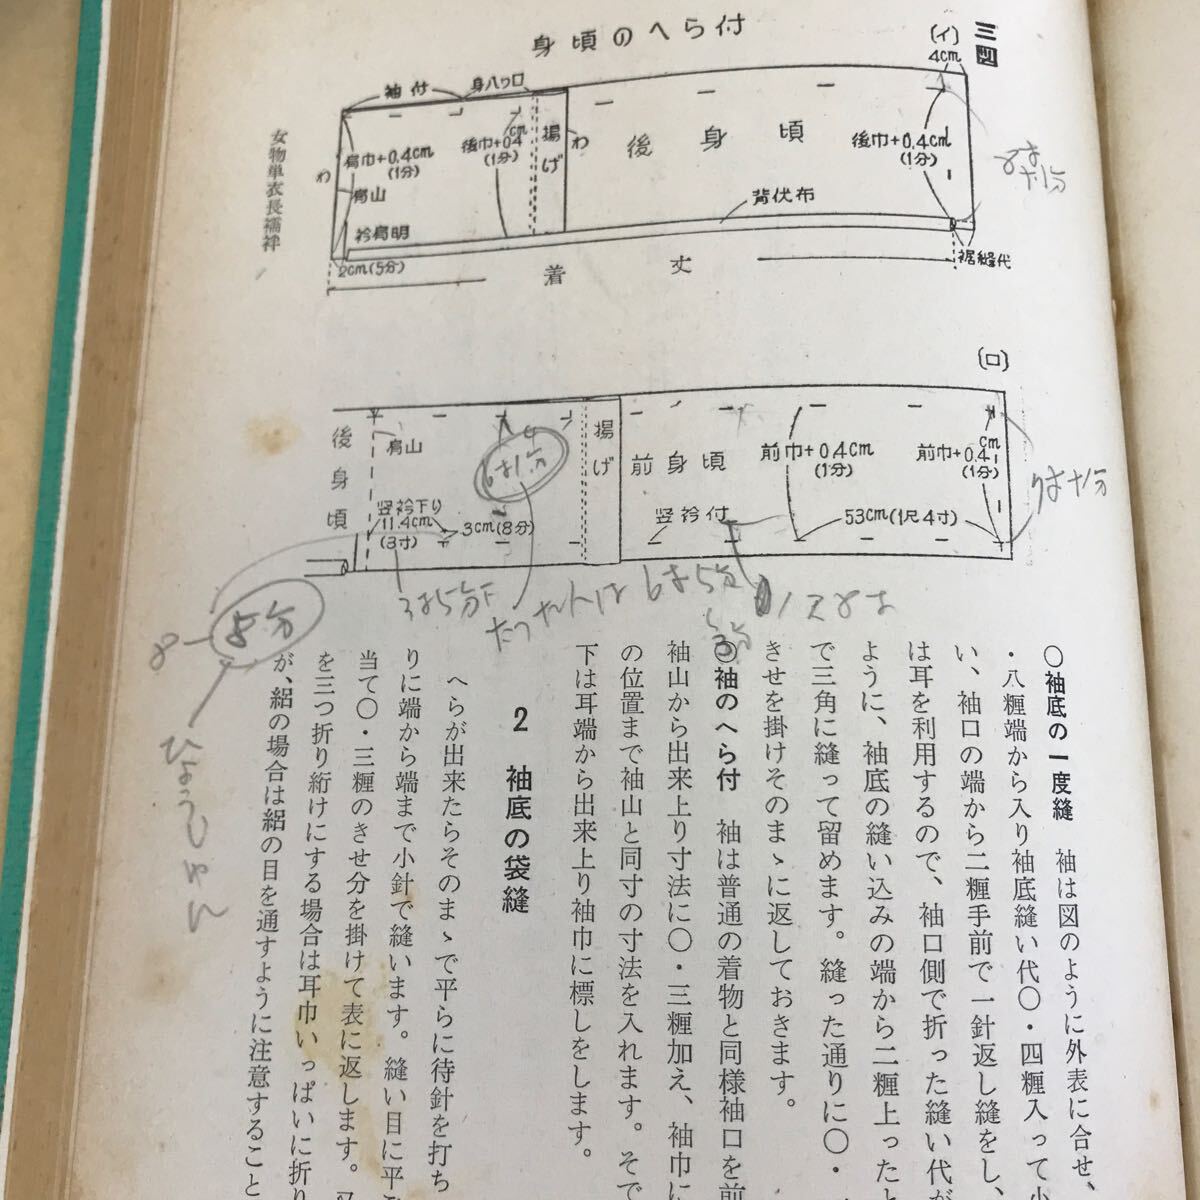 三四
身頃のへら付
(イ)
4cm
袖付
身八ツ口
わ
肩巾+0.4cm
(1分)
肩山
衿肩明
2cm(5分)
後巾+0.4
cm
(1分)
揚げ
わ
後身頃
後巾+0.4cm
(1分)
背伏布
裾縫代
着丈
女物単衣長襦袢
(ロ)
後身頃
肩山
竪衿下り
11.4cm
(3寸)
3cm(8分)
揚げ
前身頃
竪衿付
前巾+0.4cm
(1分)
前巾+0.4
cm
(1分)
53cm(1尺4寸)
5分
ひようじゅん
〇袖底の一度縫 袖は図のように外表に合せ、
・八糎端から入り袖底縫い代〇・四糎入って小
い、袖口の端から二糎手前で一針返し縫をし、
は耳を利用するので、袖口側で折った縫い代が
ように、袖底の縫い込みの端から二糎上ったと
で三角に縫って留めます。縫った通りに〇・
きせを掛けそのまゝに返しておきます。
〇袖のへら付 袖は普通の着物と同様袖口を前
袖山から出来上り寸法に〇・三糎加え、袖巾に
の位置まで袖山と同寸の寸法を入れます。そで
下は耳端から出来上り袖巾に標しをします。
2 袖底の袋縫
へらが出来たらそのまゝで平らに待針を打ち
りに端から端まで小針で縫います。縫い目に平
当て〇・三糎のきせ分を掛けて表に返します。
を三つ折り絎けにする場合は耳巾いっぱいに折
が、絽の場合は絽の目を通すように注意すること